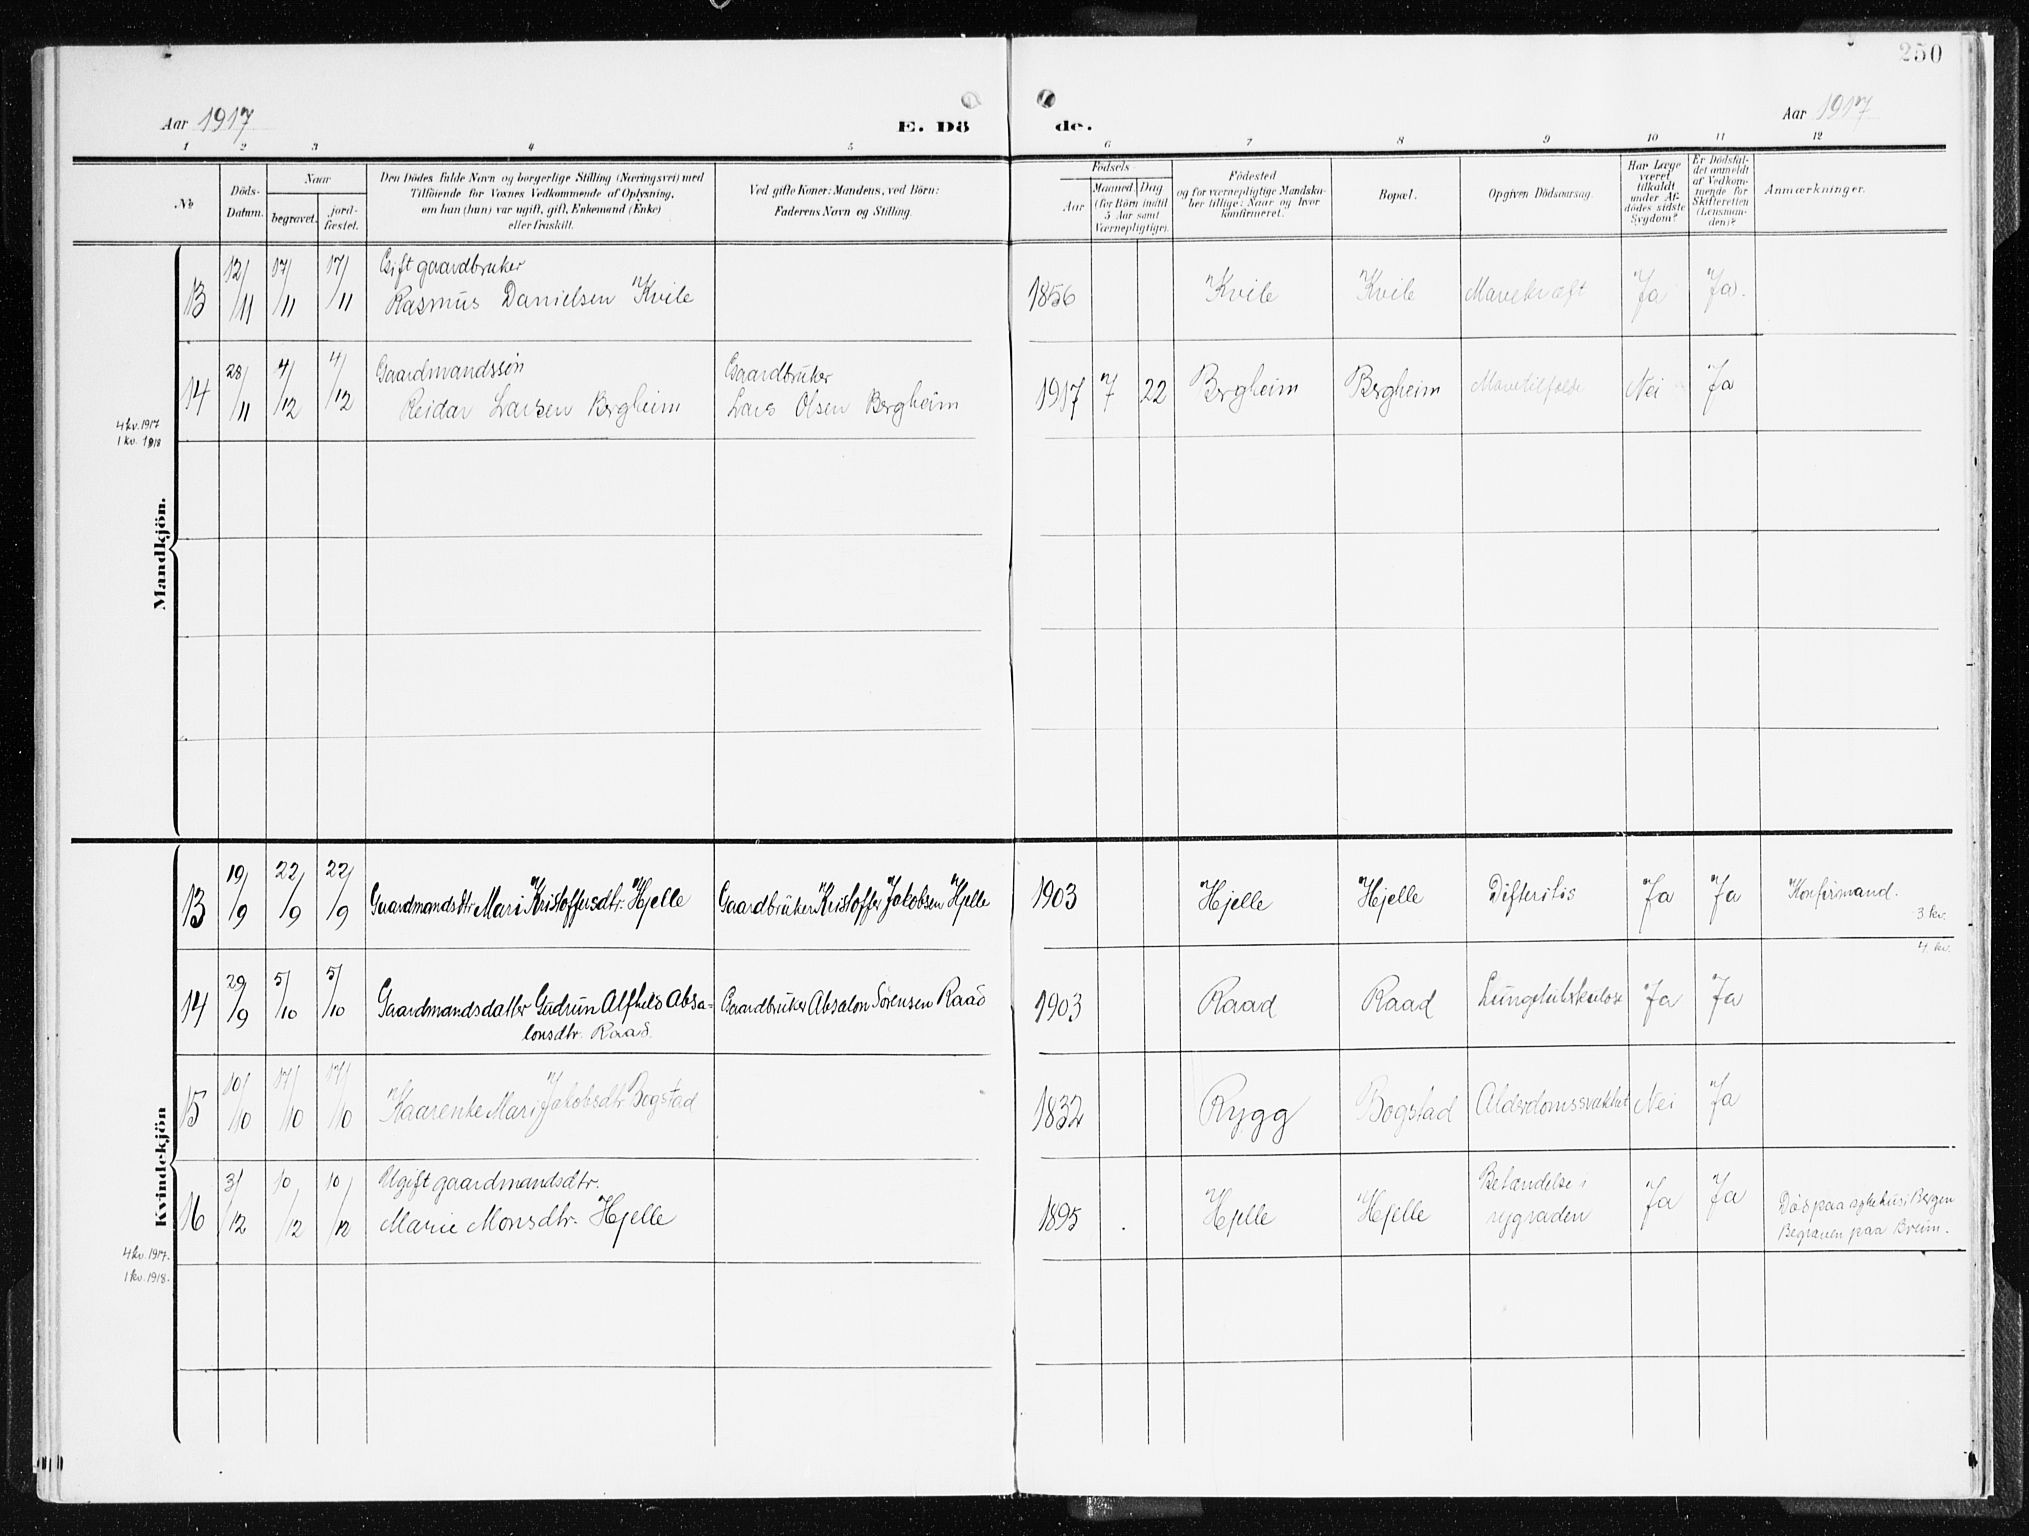 250
Aar 1917
E. Dö
de.
Aar 1917
1 2 3 4 5 6 7 8 9 10 11 12
No
Döds-
Datum.
Naar
begravet.
jord-
fæstet.
Den Dödes fulde Navn og borgerlige Stilling (Næringsvei) med
Tilföiende for Voxnes Vedkommende af Oplysning,
om han (hun) var ugift, gift, Enkemand (Enke)
eller fraskilt.
Ved gifte Koner: Mandens, ved Börn:
Faderens Navn og Stilling.
Födsels
Aar
Maaned
Dag
(for Börn indtil
5 Aar samt
Værnepligtige).
Födested
og for værnepligtige Mandska-
ber tillige: Naar og hvor
konfirmeret.
Bopæl.
Opgiven Dödsaarsag.
Har Læge
været
tilkaldt
under Af-
dödes sidste
Sygdom?
Er Dödsfal-
det anmeldt
af Vedkom-
mende for
Skifteretten
(Lensman-
den)?
Anmærkninger.
Mandkjön.
13 12/11 17/11 17/11 Gift gaardbruker
Rasmus Danielsen Kvile 1856 Kvile Kvile Mavekræft Ja Ja.
14 28/11 4/12 4/12 Gaardmandssøn Gaardbruker
Reidar Larsen Bergheim Lars Olsen Bergheim 1917 7 22 Bergheim Bergheim Mavetilfelde Nei Ja
4 kv. 1917
1 kv. 1918
Kvindekjön
13 19/9 22/9 22/9 Gaardmandsdtr Mari Kristoffersdtr. Hjelle Gaardbruker Kristoffer Jakobsen Hjelle 1903 Hjelle Hjelle Difteritis Ja Ja Konfirmand.
3. kv.
4. kv.
14 29/9 5/10 5/10 Gaardmandsdatter Gudrun Alfhild Absa-
lonsdtr. Raad. Gaardbruker Absalon Sørensen Raad 1903 Raad Raad Lungetuberkulose Ja Ja
15 10/10 17/10 17/10 Kaarenke Mari Jakobsdtr. Bogstad 1832 Rygg Bogstad Alderdomssvakhet Nei Ja
16 3/12 10/12 10/12 Ugift gaardmandsdtr.
Marie Monsdtr. Hjelle 1895 Hjelle Hjelle Betændelse i
rygraden Ja Ja Død paa sykehus i Bergen
Begraven paa Breim.
4 kv. 1917.
1 kv. 1918.